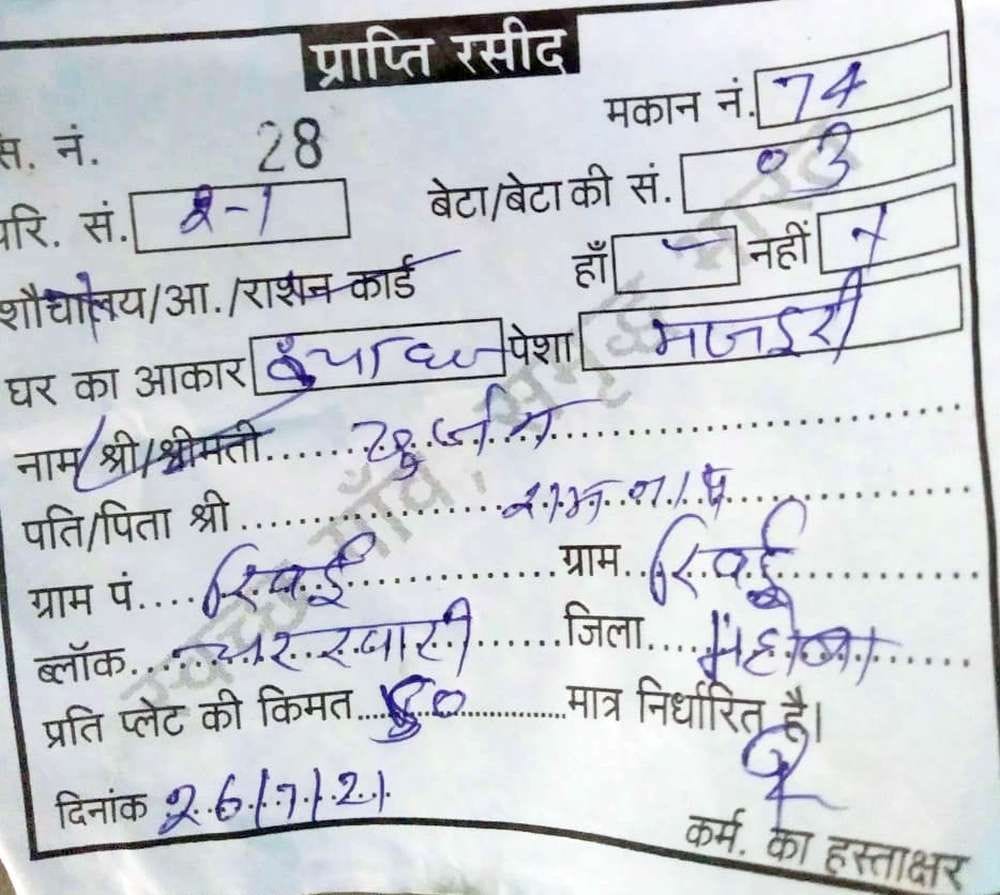 प्राप्ति रसीद
मकान नं. 74
स. नं. 28
परि. सं. 2-1 बेटा/बेटा की सं. 03
शौचालय/आ./राशन कार्ड हाँ - नहीं
घर का आकार पेशा मजदुरी
नाम श्री/श्रीमती
पति/पिता श्री
ग्राम पं. रिवई ग्राम रिवई
ब्लॉक चरखारी जिला महोबा
प्रति प्लेट की किमत 50 मात्र निर्धारित है।
दिनांक 26/7/21
कर्म. का हस्ताक्षर
स्वच्छ गाँव, समृद्ध भारत